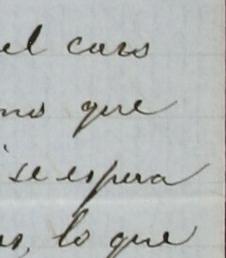 el caso
que
se espera
lo que